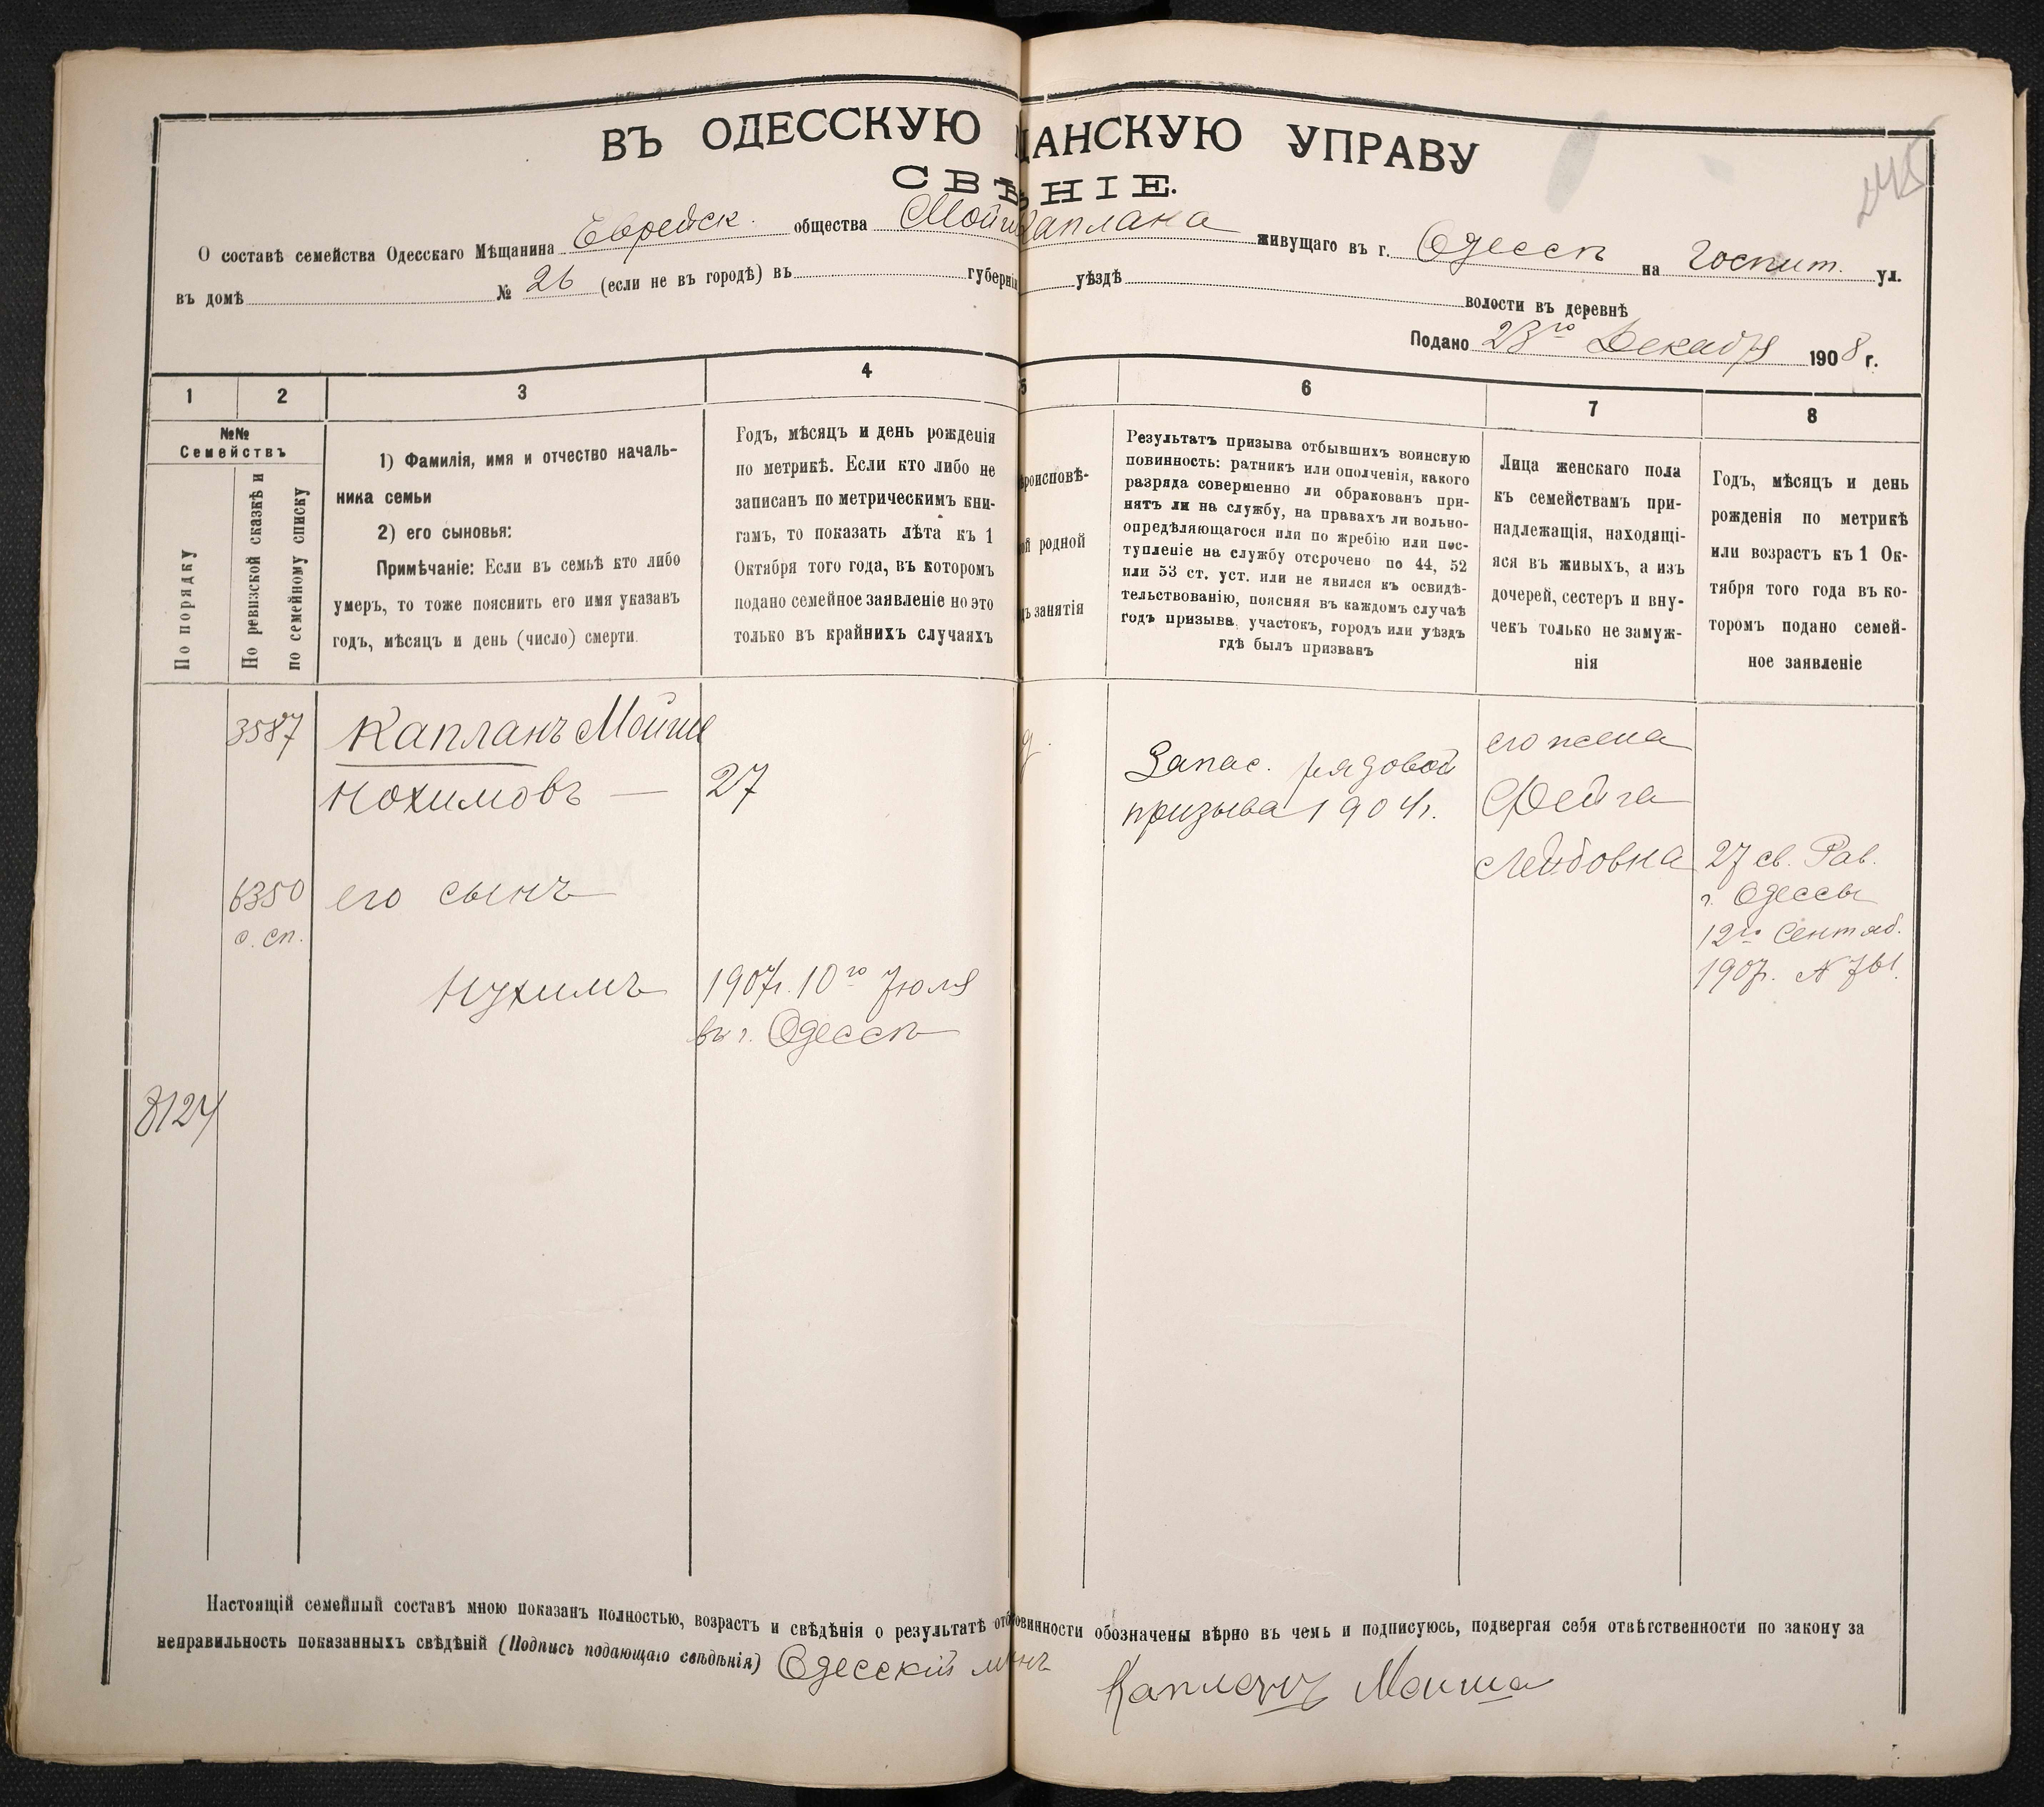 ВЪ ОДЕССКУЮ ЩАНСКУЮ УПРАВУ
СВѢНІЕ.
О составѣ семейства Одесскаго Мѣщанина Еврейск. общества Мойши Каплана живущаго въ г. Одессѣ на Госпит. ул.
въ домѣ № 26 (если не въ городѣ) въ губерніи уѣздѣ волости въ деревнѣ
Подано 23го Декабря 1908 г.
1 2 3 4 5 6 7 8
№№
Семействъ
По порядку
По ревизской сказкѣ и
по семейному списку
1) Фамилія, имя и отчество началь-
ника семьи
2) его сыновья:
Примѣчаніе: Если въ семьѣ кто либо
умеръ, то тоже пояснить его имя указавъ
годъ, мѣсяцъ и день (число) смерти.
Годъ, мѣсяцъ и день рожденія
по метрикѣ. Если кто либо не
записанъ по метрическимъ кни-
гамъ, то показать лѣта къ 1
Октября того года, въ которомъ
подано семейное заявленіе но это
только въ крайнихъ случаяхъ
роисповѣ-
родной
занятія
Результатъ призыва отбывшихъ воинскую
повинность: ратникъ или ополченія, какого
разряда совершенно ли обракованъ при-
нятъ ли на службу, на правахъ ли вольно-
опредѣляющагося или по жребію или пос-
тупленіе на службу отсрочено по 44, 52
или 53 ст. уст. или не явился къ освидѣ-
тельствованію, поясняя въ каждомъ случаѣ
годъ призыва, участокъ, городъ или уѣздъ
гдѣ былъ призванъ
Лица женскаго пола
къ семействамъ при-
надлежащія, находящі-
яся въ живыхъ, а изъ
дочерей, сестеръ и вну-
чекъ только не замуж-
нія
Годъ, мѣсяцъ и день
рожденія по метрикѣ
или возрастъ къ 1 Ок-
тября того года въ ко-
торомъ подано семей-
ное заявленіе
3587 Капланъ Мойше
Нохимовъ — 27
Запас. рядовой
призыва 1904г.
его жена
Фейга
Лейбовна
27 св. Рав.
г. Одессы
12го Сентяб.
1907г. N 761.
6350 его сынъ
о. сп.
Нухимъ 1907г. 10го Іюля
въ г. Одессѣ
8124
Настоящій семейный составъ мною показанъ полностью, возрастъ и свѣдѣнія о результатѣ отб повинности обозначены вѣрно въ чемъ и подписуюсь, подвергая себя отвѣтственности по закону за
неправильность показанныхъ свѣдѣній (Подпись подающаго свѣдѣнія) Одесскій мѣ-нъ
Капланъ Моиша